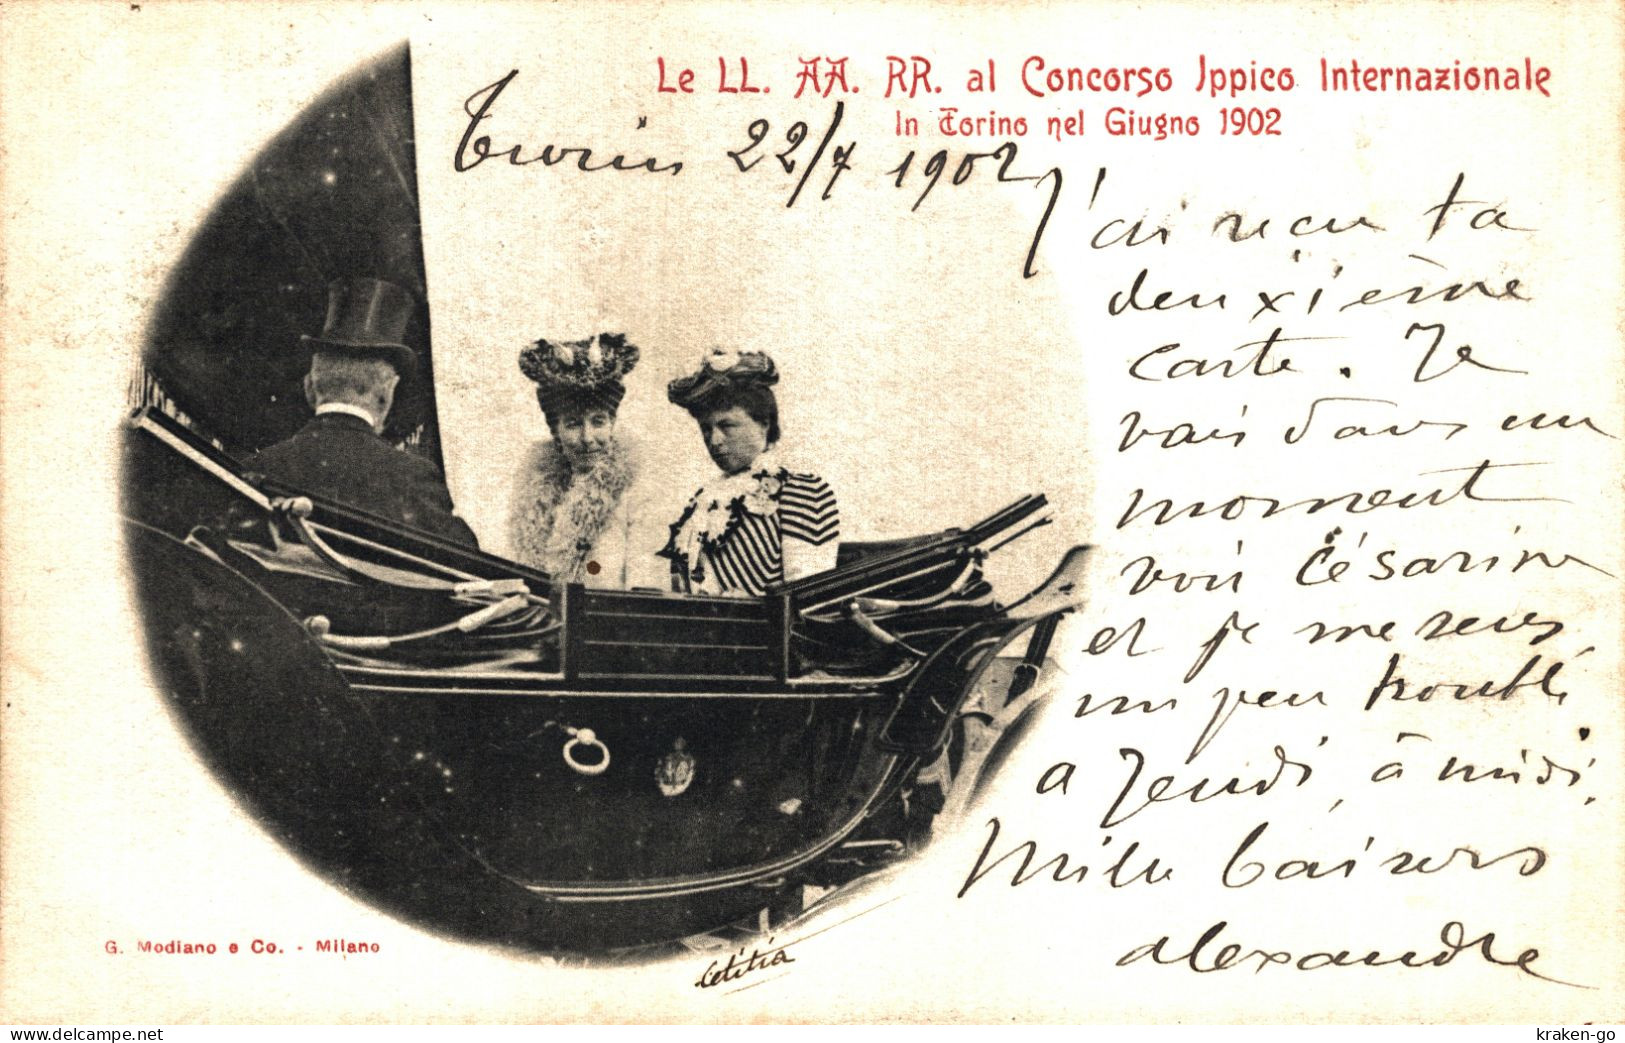 Le LL. AA. RR. al Concorso Ippico Internazionale
In Torino nel Giugno 1902
Turin 22/7 1902
J'ai reçu ta
deuxième
carte. Je
vais dans un
moment
voir Césarine
et je me
un peu
a Jeudi, à midi.
Mille baisers
alexandre
G. Modiano e Co. - Milano
Letitia
kraken-go